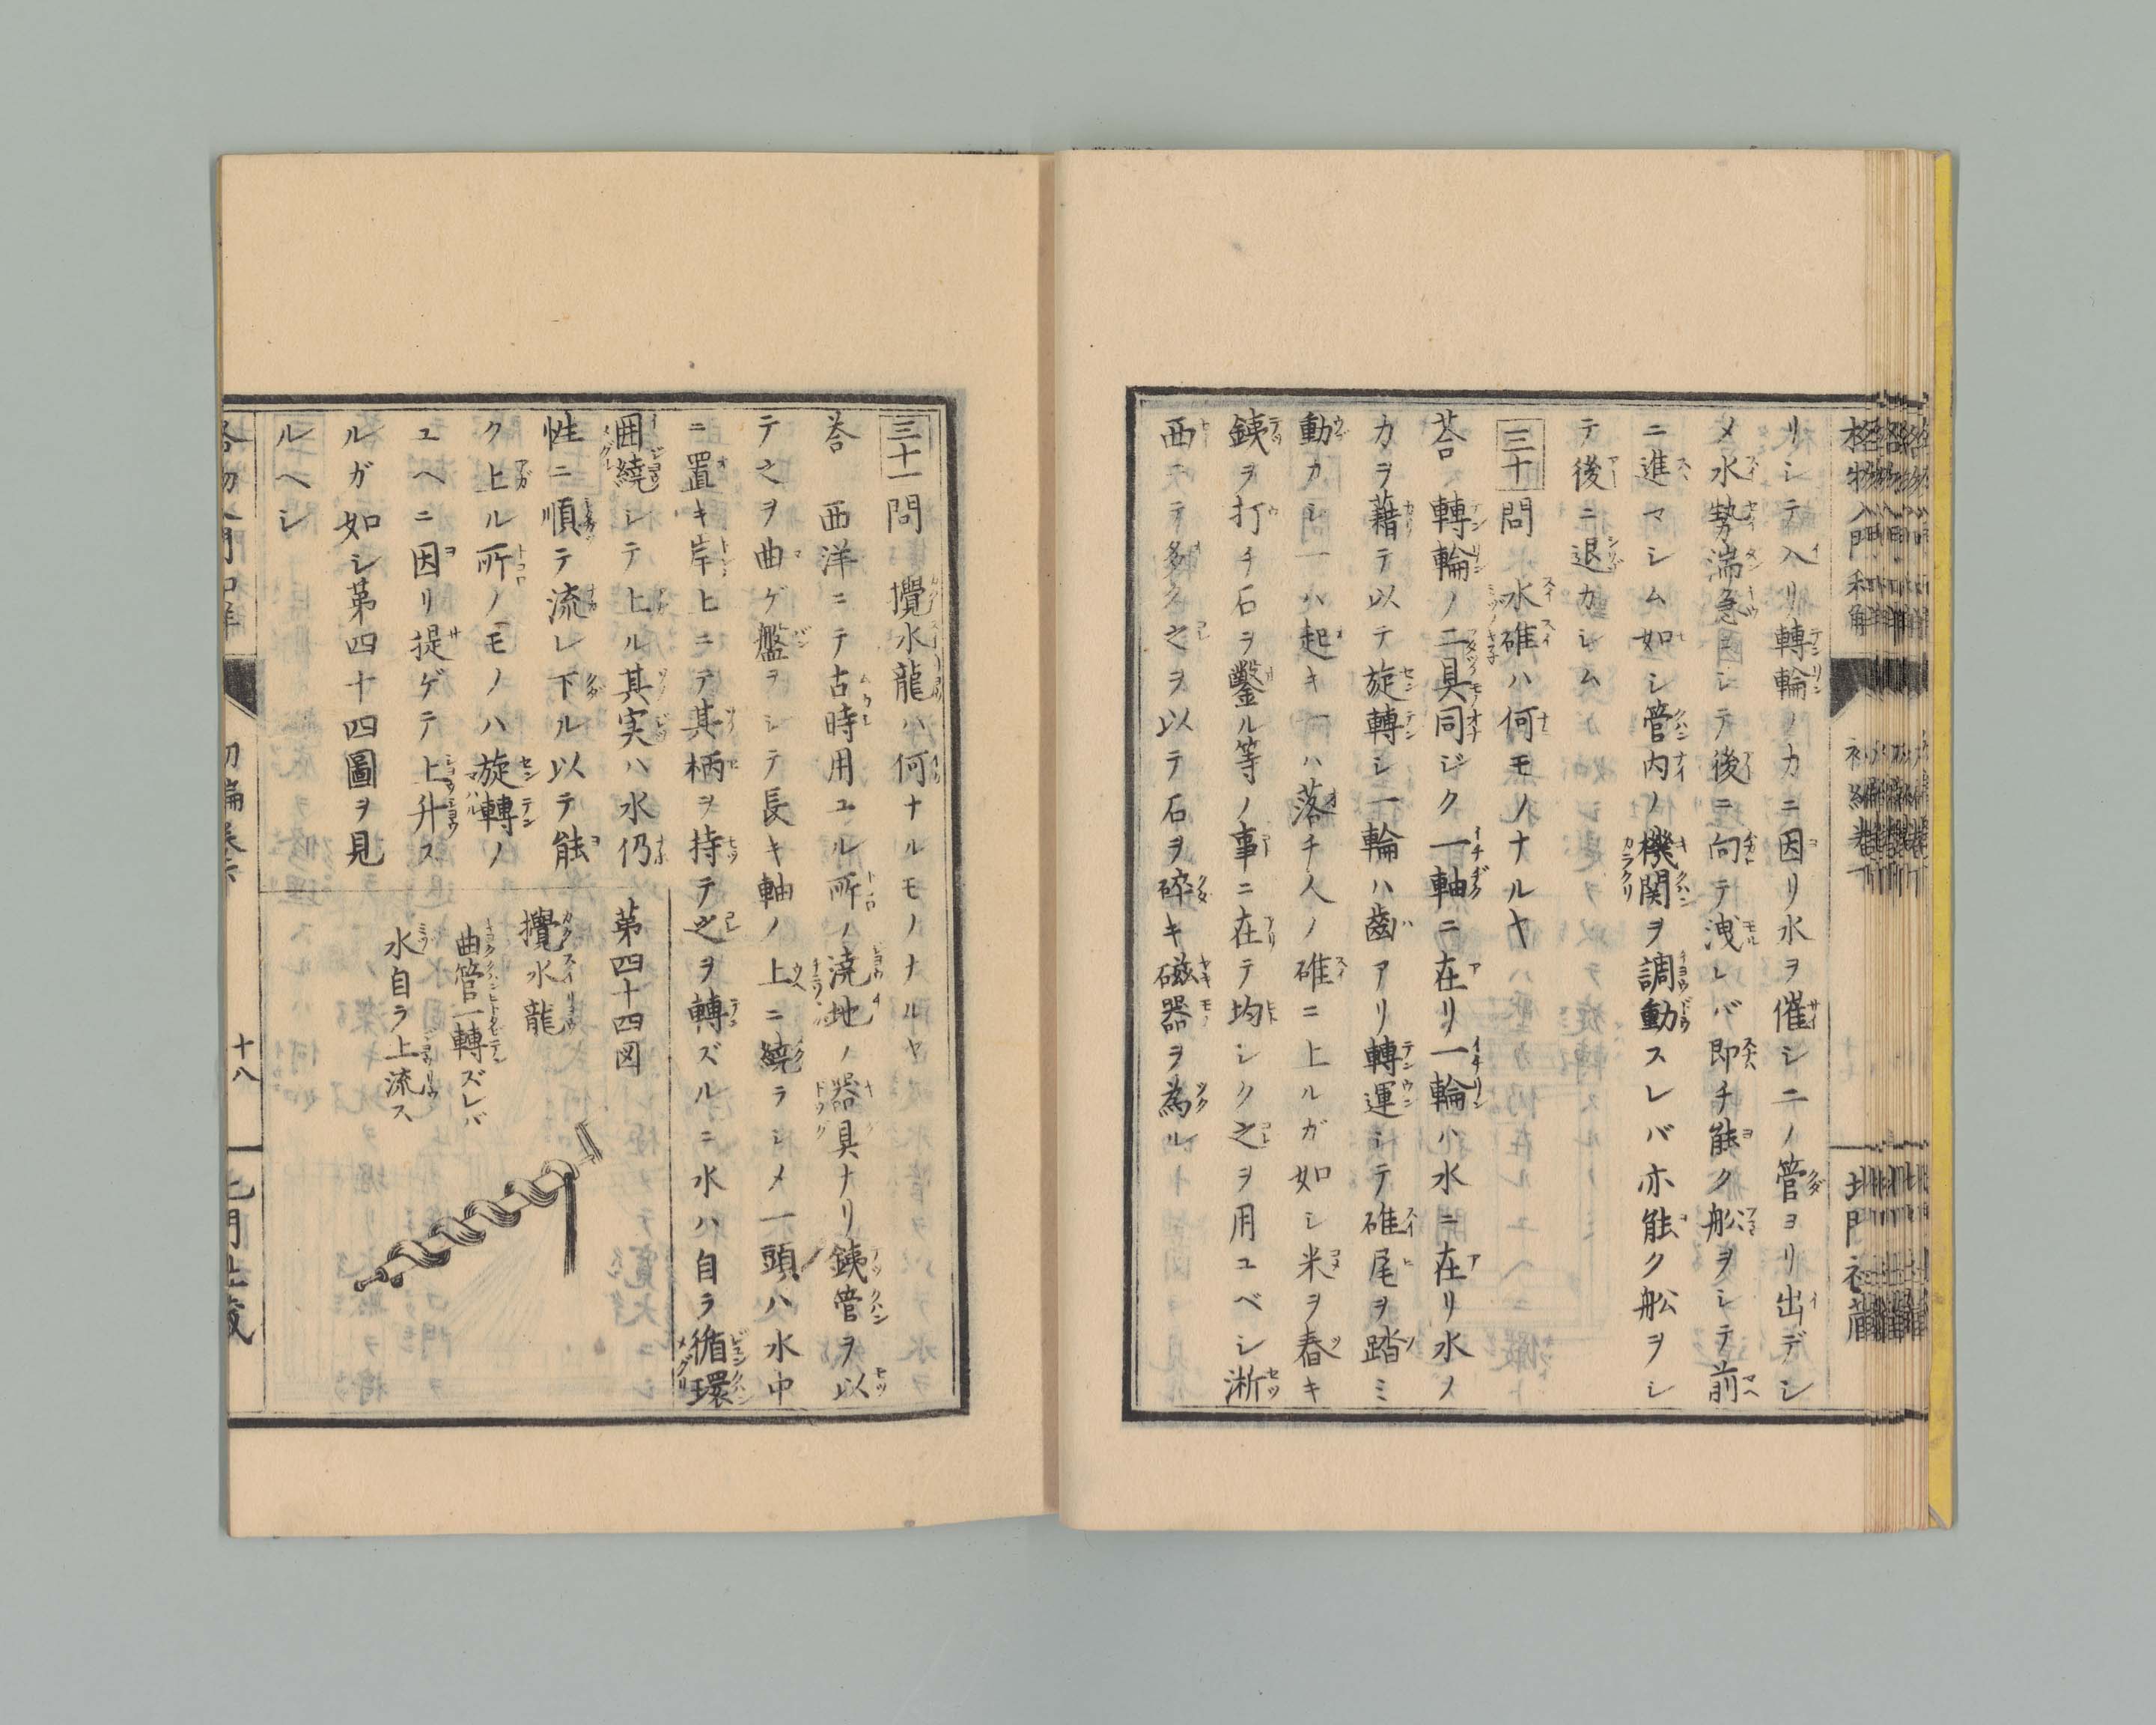 リシテ入リ轉輪ノカニ因リ水ヲ催シ二ノ管ヨリ出デシ
メ水勢湍急ニシテ後ニ向テ洩レバ即チ能ク舩ヲシテ前
ニ進マシム如シ管内ノ機関ヲ調動スレバ亦能ク舩ヲシ
テ後ニ退カシム
三十問 水碓ハ何モノナルヤ
荅 轉輪ノ二具同ジク一軸ニ在リ一輪ハ水ニ在リ水ノ
力ヲ藉テ以テ旋轉シ一輪ハ齒アリ轉運シテ碓尾ヲ踏ミ
動カシ一ハ起キ一ハ落チ人ノ碓ニ上ルガ如シ米ヲ舂キ
銕ヲ打チ石ヲ鑿ル等ノ事ニ在テ均シク之ヲ用ユベシ淅
西ニテ多ク之ヲ以テ石ヲ碎キ磁器ヲ為ル
三十一問 攪水龍ハ何ナルモノナルヤ
荅 西洋ニテ古時用ユル所ノ澆地ノ器具ナリ銕管ヲ以
テ之ヲ曲ゲ盤ラシテ長キ軸ノ上ニ繞ラシメ一頭ハ水中
ニ置キ岸上ニテ其柄ヲ持テ之ヲ轉ズルニ水ハ自ラ循環
囲繞シテ上ル其実ハ水仍
性ニ順テ流レ下ル以テ能
ク上ル所ノモノハ旋轉ノ
ユヘニ因リ提ゲテ上升ス
ルガ如シ第四十四圖ヲ見
ルヘシ
第四十四図
攪水龍
曲管一轉ズレバ
水自ラ上流ス
十八